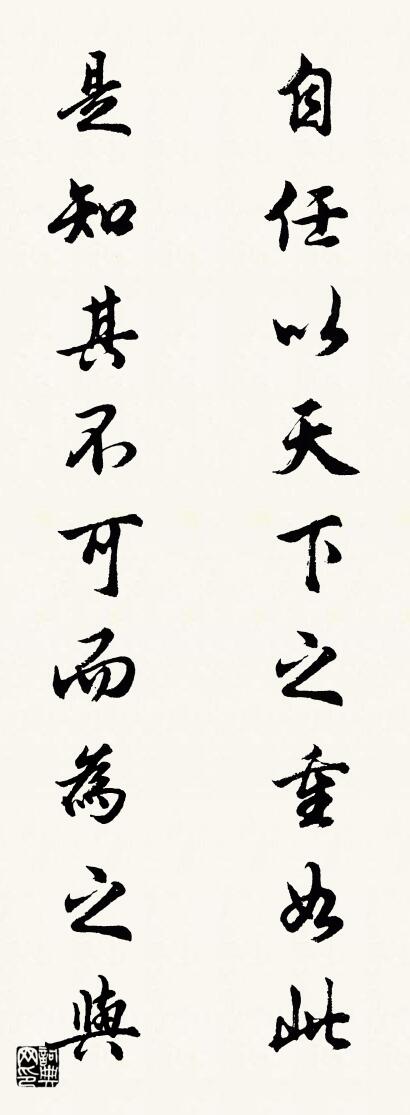 自任以天下之重如此
是知其不可而為之與
詞典網印